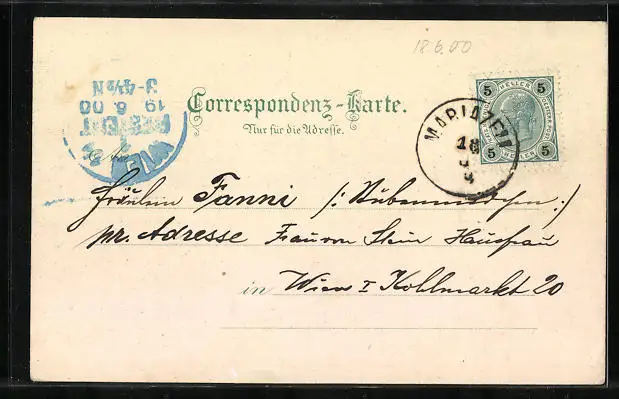 18.6.00
Correspondenz-Karte.
Nur für die Adresse.
5 HELLER 5
5 HELLER 5
MARIAZELL
18
WIEN
BESTELLT
19 6 00
3-4½N
Fräulein Fanni /: Stubenmädchen :/
pr. Adresse Frau von Stein Hausfrau
in Wien I Kohlmarkt 20